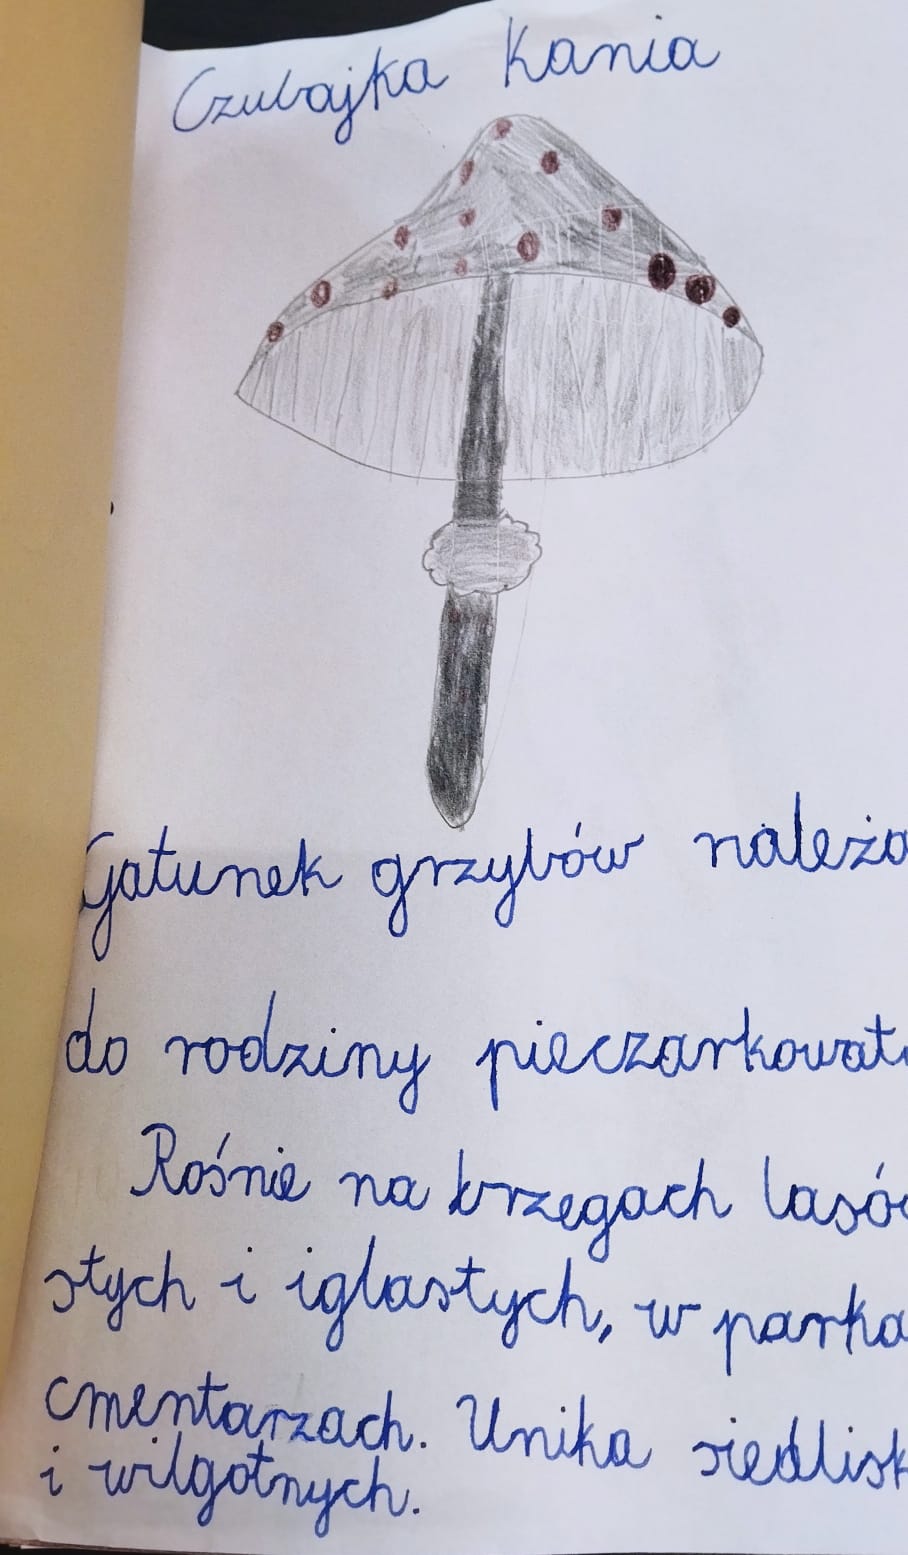 Czubajka Kania
Gatunek grzybów należą
do rodziny pieczarkowat
Rośnie na brzegach lasó
stych i iglastych, w parka
cmentarzach. Unika siedlisk
i wilgotnych.